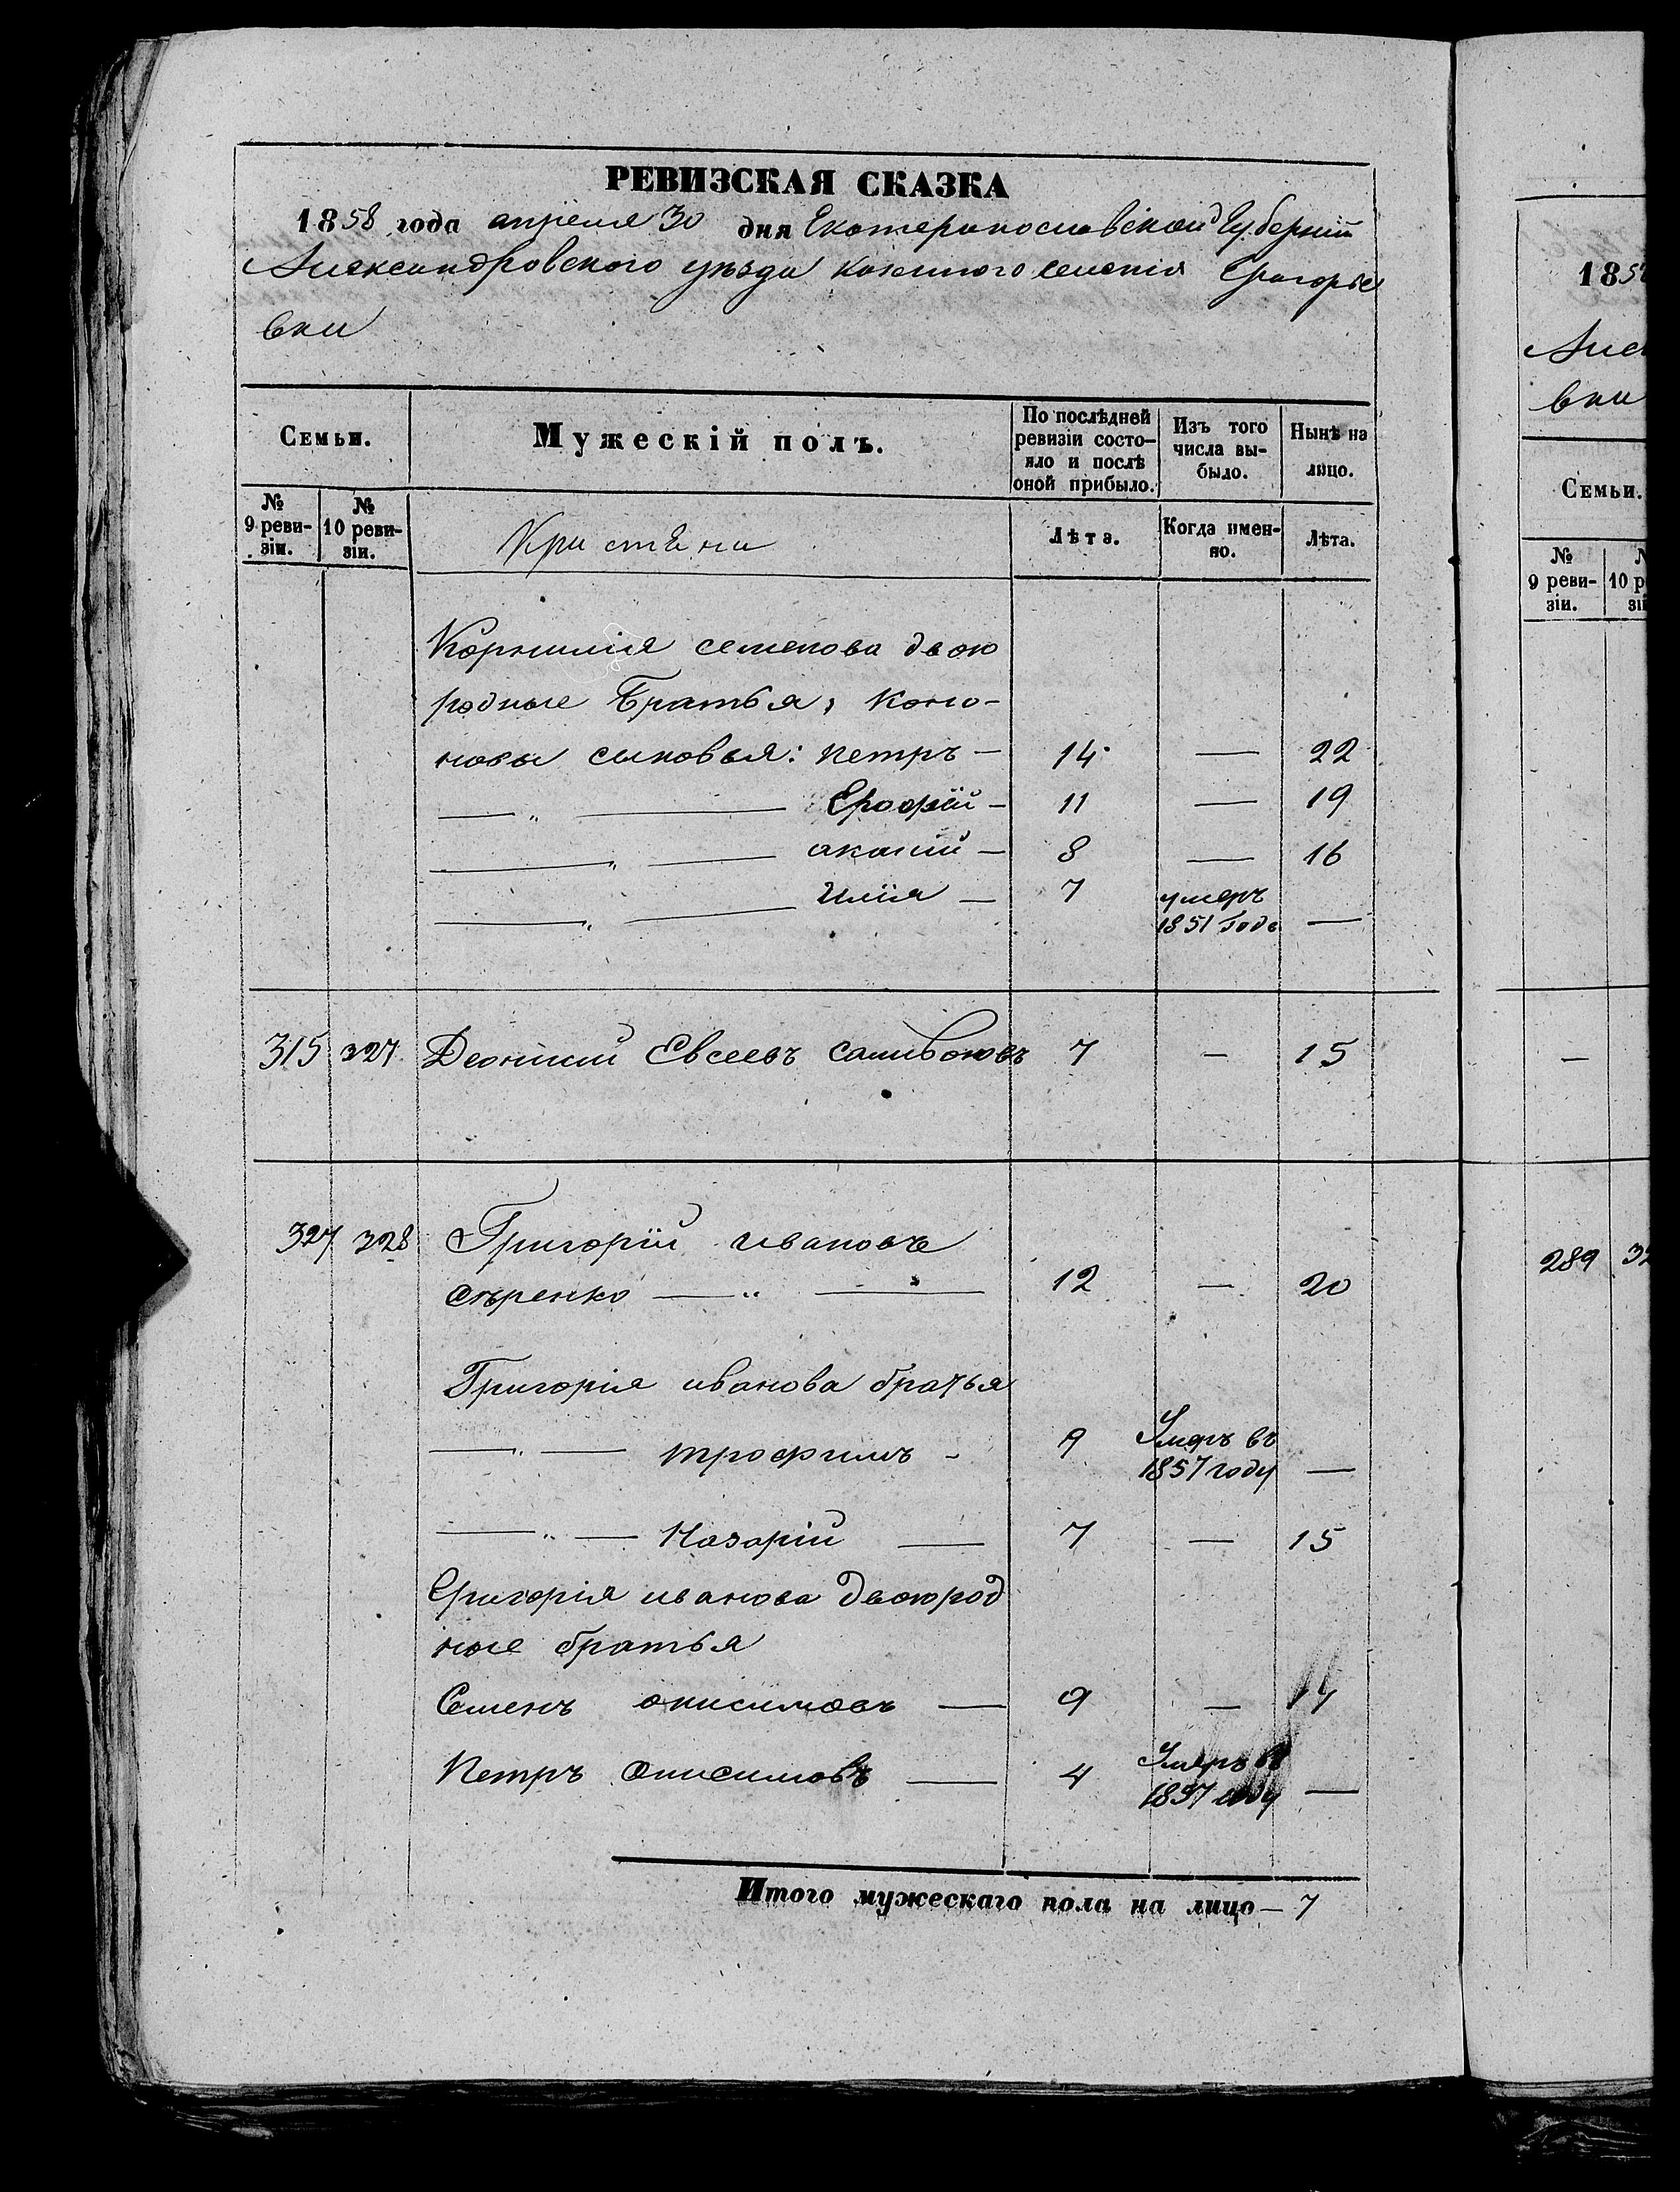 РЕВИЗСКАЯ СКАЗКА
1858 года апреля 30 дня Екатеринославской Губернии
Александровского уезда казенного селения Григорье
вки
Семьи.
Мужескій полъ.
По послѣдней ревизіи состо-
яло и послѣ
оной прибыло.
Изъ того
числа вы-
было.
Нынѣ на
лицо.
№
9 реви-
зіи.
№
10 реви-
зіи.
Кристяни
Лѣта.
Когда имен-
но.
Лѣта.
Корнилія семенова двою
родные Братья, Коно-
новы сыновья: Петръ — 14 — 22
— „ — Ерофій — 11 — 19
— „ — акакий — 8 — 16
— „ — Илія — 7 умеръ
1851 Годе —
315 327 Деонисий Евсеевъ саливоновъ 7 — 15
327 328 Григорій ивановъ
Сѣренко — „ — 12 — 20
Григорія иванова братья
— „ — трофимъ - 9 Умеръ въ
1857 году —
— „ — Назарій — 7 — 15
Григорія иванова двоюрод
ные братья
Семенъ онисимовъ — 9 — 17
Петръ Онисимовъ — 4 Умеръ въ
1857 году —
Итого мужескаго пола на лицо — 7
185
Алек
вки
Семьи.
№
9 реви-
зіи.
10 р
зі
—
289 32